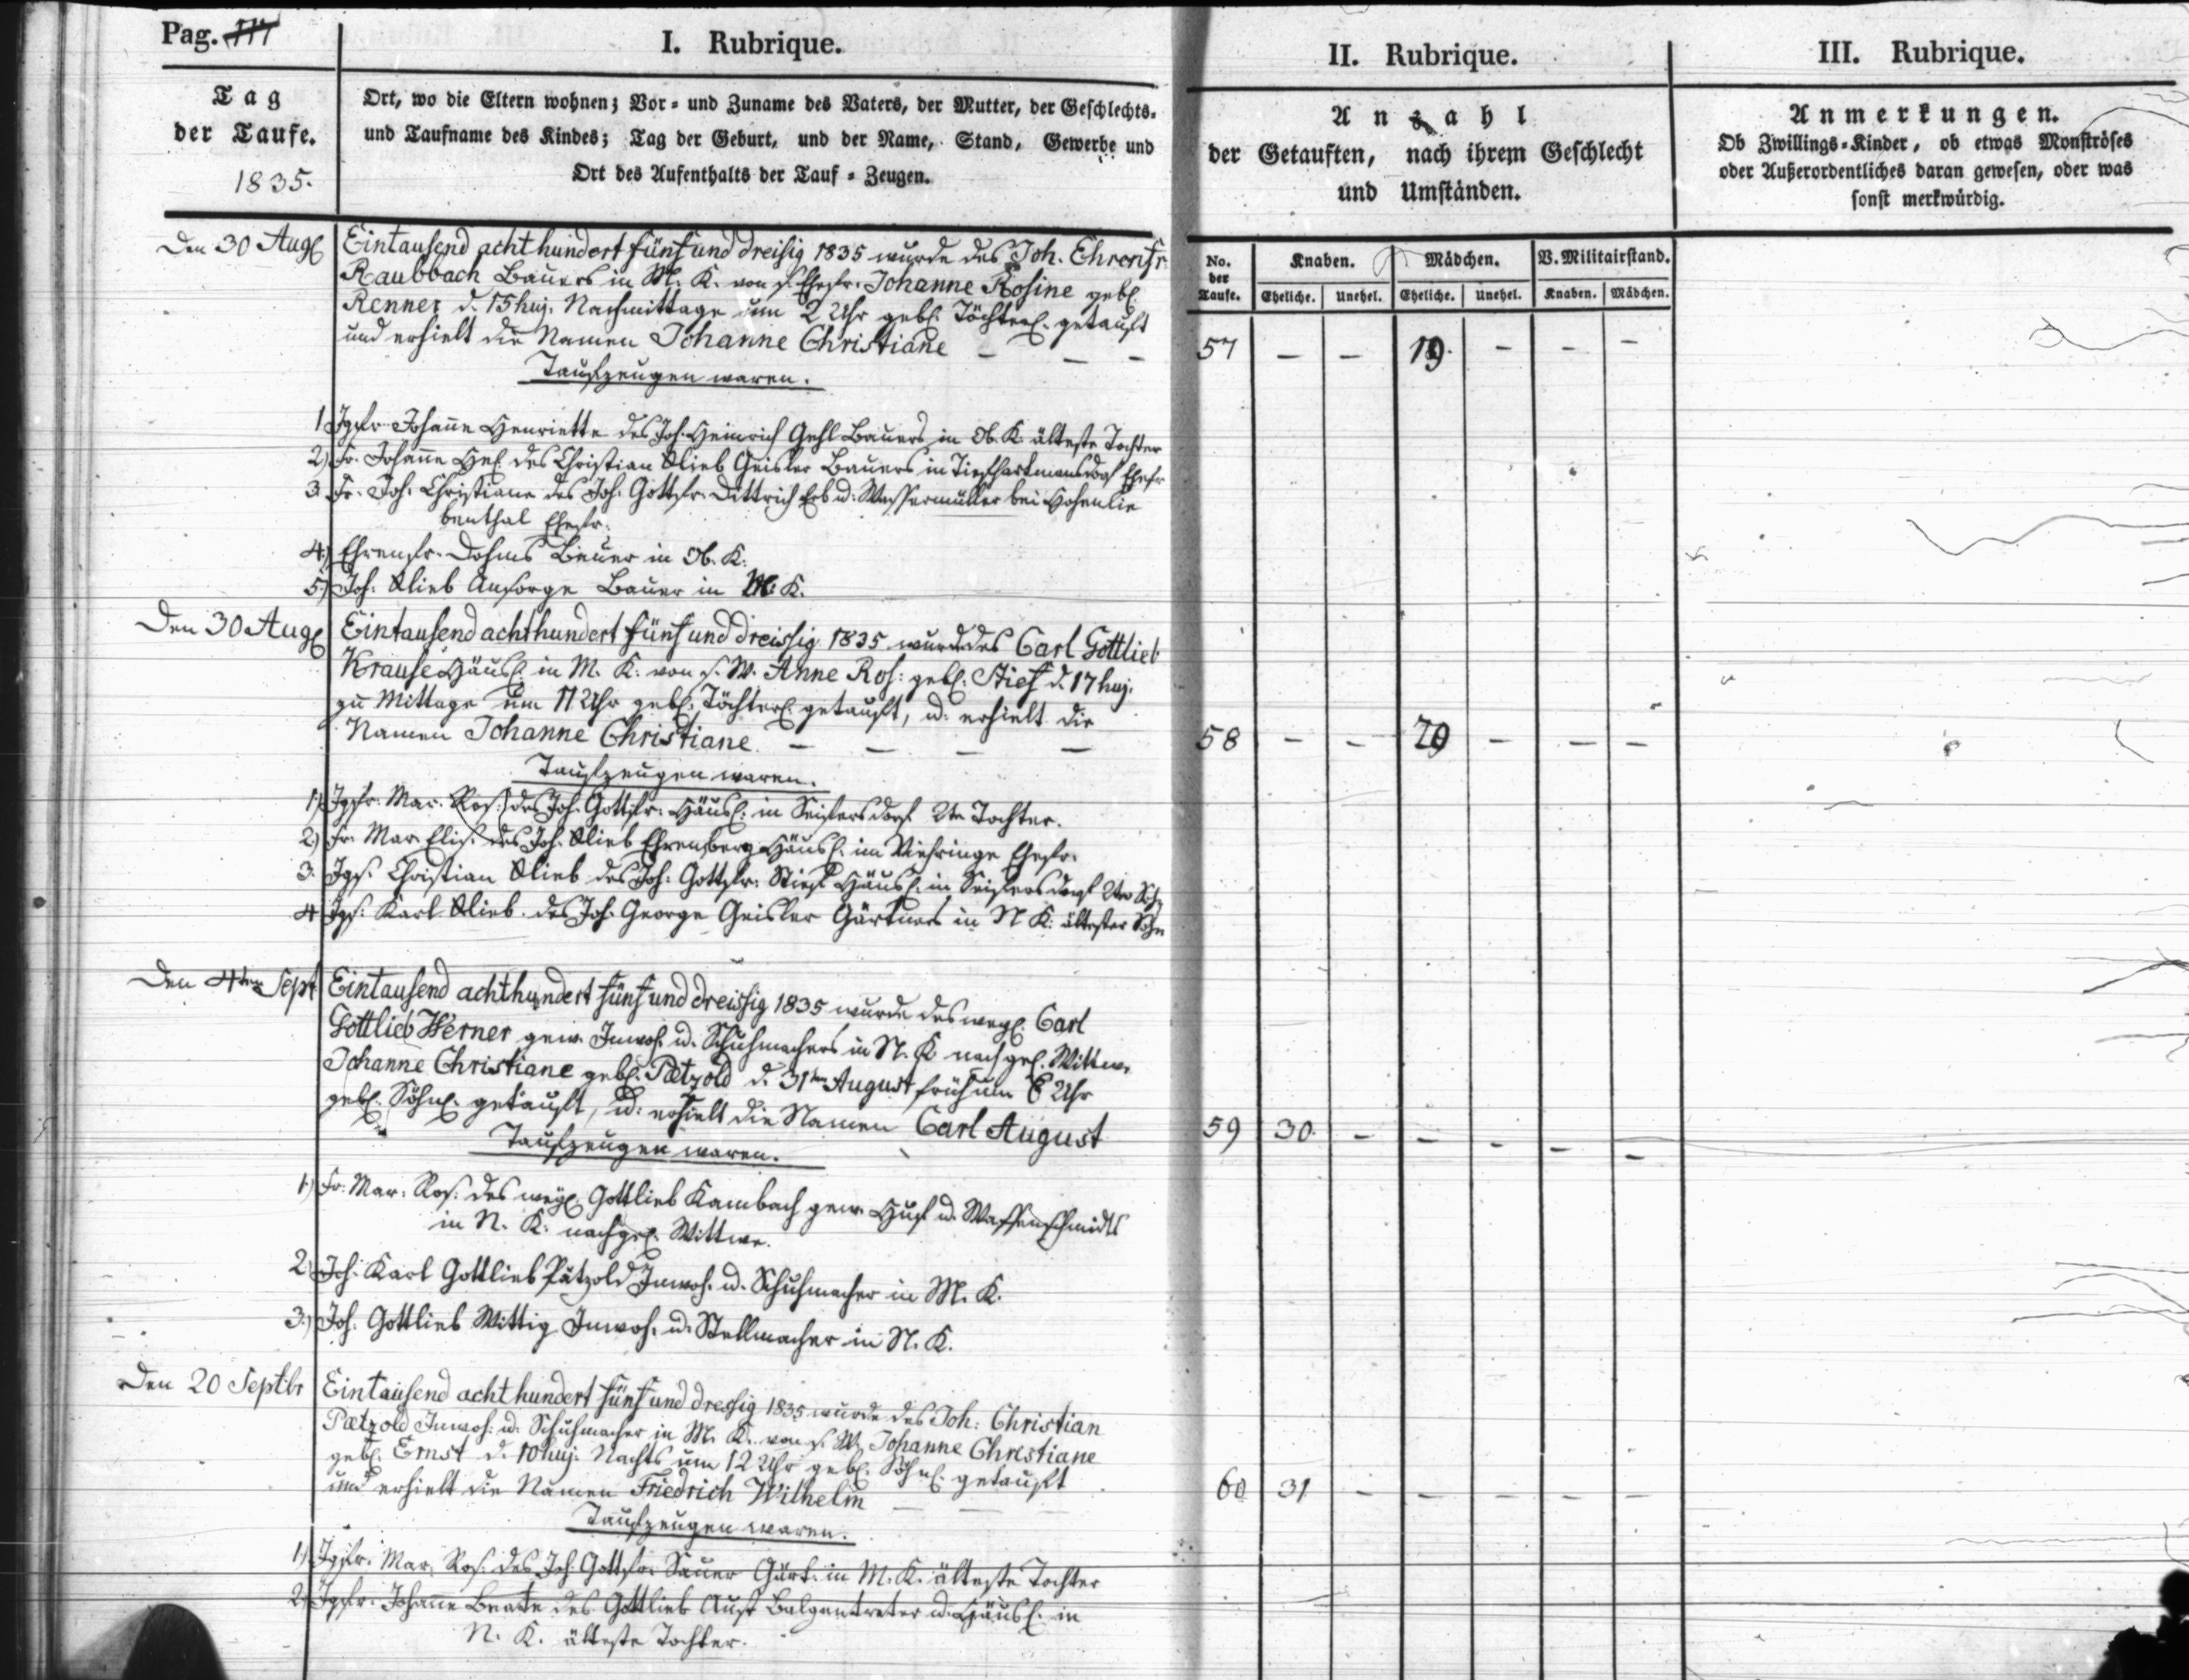 Pag.
I. Rubrique.
II. Rubrique.
III. Rubrique.
Tag
der Taufe.
1835.
Ort, wo die Eltern wohnen; Vor= und Zuname des Vaters, der Mutter, der Geschlechts=
und Taufname des Kindes; Tag der Geburt, und der Name, Stand, Gewerbe und
Ort des Aufenthalts der Tauf=Zeugen.
Anzahl
der Getauften, nach ihrem Geschlecht
und Umständen.
Anmerkungen.
Ob Zwillings=Kinder, ob etwas Monströses
oder Außerordentliches daran gewesen, oder was
sonst merkwürdig.
No. der Taufe.
Knaben. Mädchen. V. Militairstand.
Eheliche. Unehel. Eheliche. Unehel. Knaben. Mädchen.
Den 30 Aug
Eintausend achthundert fünf und dreisig 1835 wurde des Joh. Ehrenfr.
Raubbach Bauers in M. K. von s. Ehefr. Johanne Rosine geb.
Renner d. 15 huj. Nachmittage um 2 Uhr geb. Töchterl. getauft
und erhielt die Namen Johanne Christiane – – –
57 – – 19. – – –
Taufzeugen waren.
1 Jgfr. Johanne Henriette des Joh. Heinrich Gehl Bauers in Ob. K. älteste Tochter
2) Fr. Johanne Hel. des Christian Glieb Geisler Bauers in Tiefhartmansdorf Ehefr
3. Fr. Joh. Christiane des Joh. Gottfr. Dittrich Erb u. Wassermüller bei Hohenlie
benthal Ehefr.
4.) Ehrenfr. Dohms Bauer in Ob. K.
5.) Joh. Glieb Ansorge Bauer in M. K.
Den 30 Aug
Eintausend achthundert fünf und dreissig 1835 wurde des Carl Gottlieb
Krause Häusl. in M. K. von s. W. Anne Ros: geb. Stief d. 17 huj.
zu Mittage um 11 Uhr geb. Töchterl. getauft, u. erhielt die
Namen Johanne Christiane. – – – –
58 – – 20 – – –
Taufzeugen waren.
1) Jgfr. Mar. Ros. des Joh. Gottfr. Häusl. in Seifersdorf 2te Tochter.
2) Fr. Mar. Elis. des Joh. Glieb Ehrenberg Häusl. im Viehringe Ehefr.
3. Jgs. Christian Glieb des Joh. Gottfr. Stief Häusl. in Seifersdorf 2ter Sohn
4 Jgs. Karl Glieb des Joh. George Geisler Gärtners in N K. ältester Sohn
Den 4ten Sept
Eintausend achthundert fünf und dreissig 1835 wurde des wegl. Carl
Gottlieb Werner gew. Inwoh. u. Schuhmachers in N. K. nachgel. Wittwe
Johanne Christiane geb. Pætzold d. 31ten August früh um 8 Uhr
geb. Söhnl. getauft, u. erhielt die Namen Carl August
59 30. – – – – –
Taufzeugen waren.
1.) Fr. Mar. Ros. des wegl. Gottlieb Kambach gew. Huf u. Waffenschmidts
in N. K. nachgel. Wittwe.
2) Joh. Karl Gottlieb Pätzold Inwoh. u. Schuhmacher in M. K.
3.) Joh. Gottlieb Wittig Inwoh. u. Stellmacher in N. K.
Den 20 Septbr
Eintausend acht hundert fünf und dressig 1835 wurde des Joh: Christian
Pætzold Inwoh. u. Schuhmacher in M. K. von s. W. Johanne Christiane
geb. Ernst d. 10 huj. Nachts um 12 Uhr geb. Söhnl. getauft
und erhielt die Namen Friedrich Wilhelm –
60 31 – – – – –
Taufzeugen waren.
1.) Jgfr. Mar. Ros. des Joh. Gottfr. Sauer Gärt. in M. K. älteste Tochter
2) Jgfr. Johanne Beate des Gottlieb Aust Balgentreter u. Häusl. in
N. K. älteste Tochter.